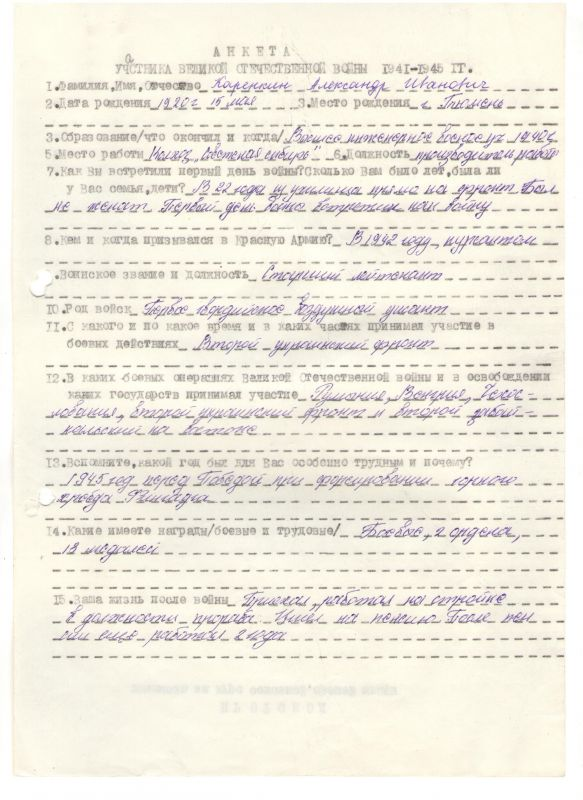 АНКЕТА
УЧАСТНИКА ВЕЛИКОЙ ОТЕЧЕСТВЕННОЙ ВОЙНЫ 1941-1945 ГГ.
1.Фамилия,Имя,Отчество Каренкин Александр Иванович
2.Дата рождения 1920 г 15 мая 3.Место рождения г. Тюмень
3.Образование/что окончил и когда/ Военное инженерное 1942 г
5.Место работы Колхоз „Советская сибирь" 6.Должность производитель работ
7.Как Вы встретили первый день войны?Сколько Вам было лет,была ли
у Вас семья,дети? В 22 года из училища прямо на фронт Был
не женат. Первый день войны встретили как войну
8.Кем и когда призывался в Красную Армию? В 1942 году, курсантом
.Воинское звание и должность Старший лейтенант
10.Род войск Первое гвардейское воздушный
11.С какого и по какое время и в каких частях принимал участие в
боевых действиях Второй украинский фронт
12.В каких боевых операциях Великой Отечественной войны и в освобождении
каких государств принимал участие Румыния, Венгрия, Чехос-
лования, второй украинский фронт и второй забай-
кальский на востоке
13.Вспомните,какой год был для Вас особенно трудным и почему?
1945 год перед Победой при форсировании горного
хребда
14.Какие имеете награды/боевые и трудовые/ Боевые, 2 ордена,
13 медалей
15.Ваша жизнь после войны Приехал, работал на стройке
в должности прораба. Ушел на пенсию. После пен
сии еще работал 2 года